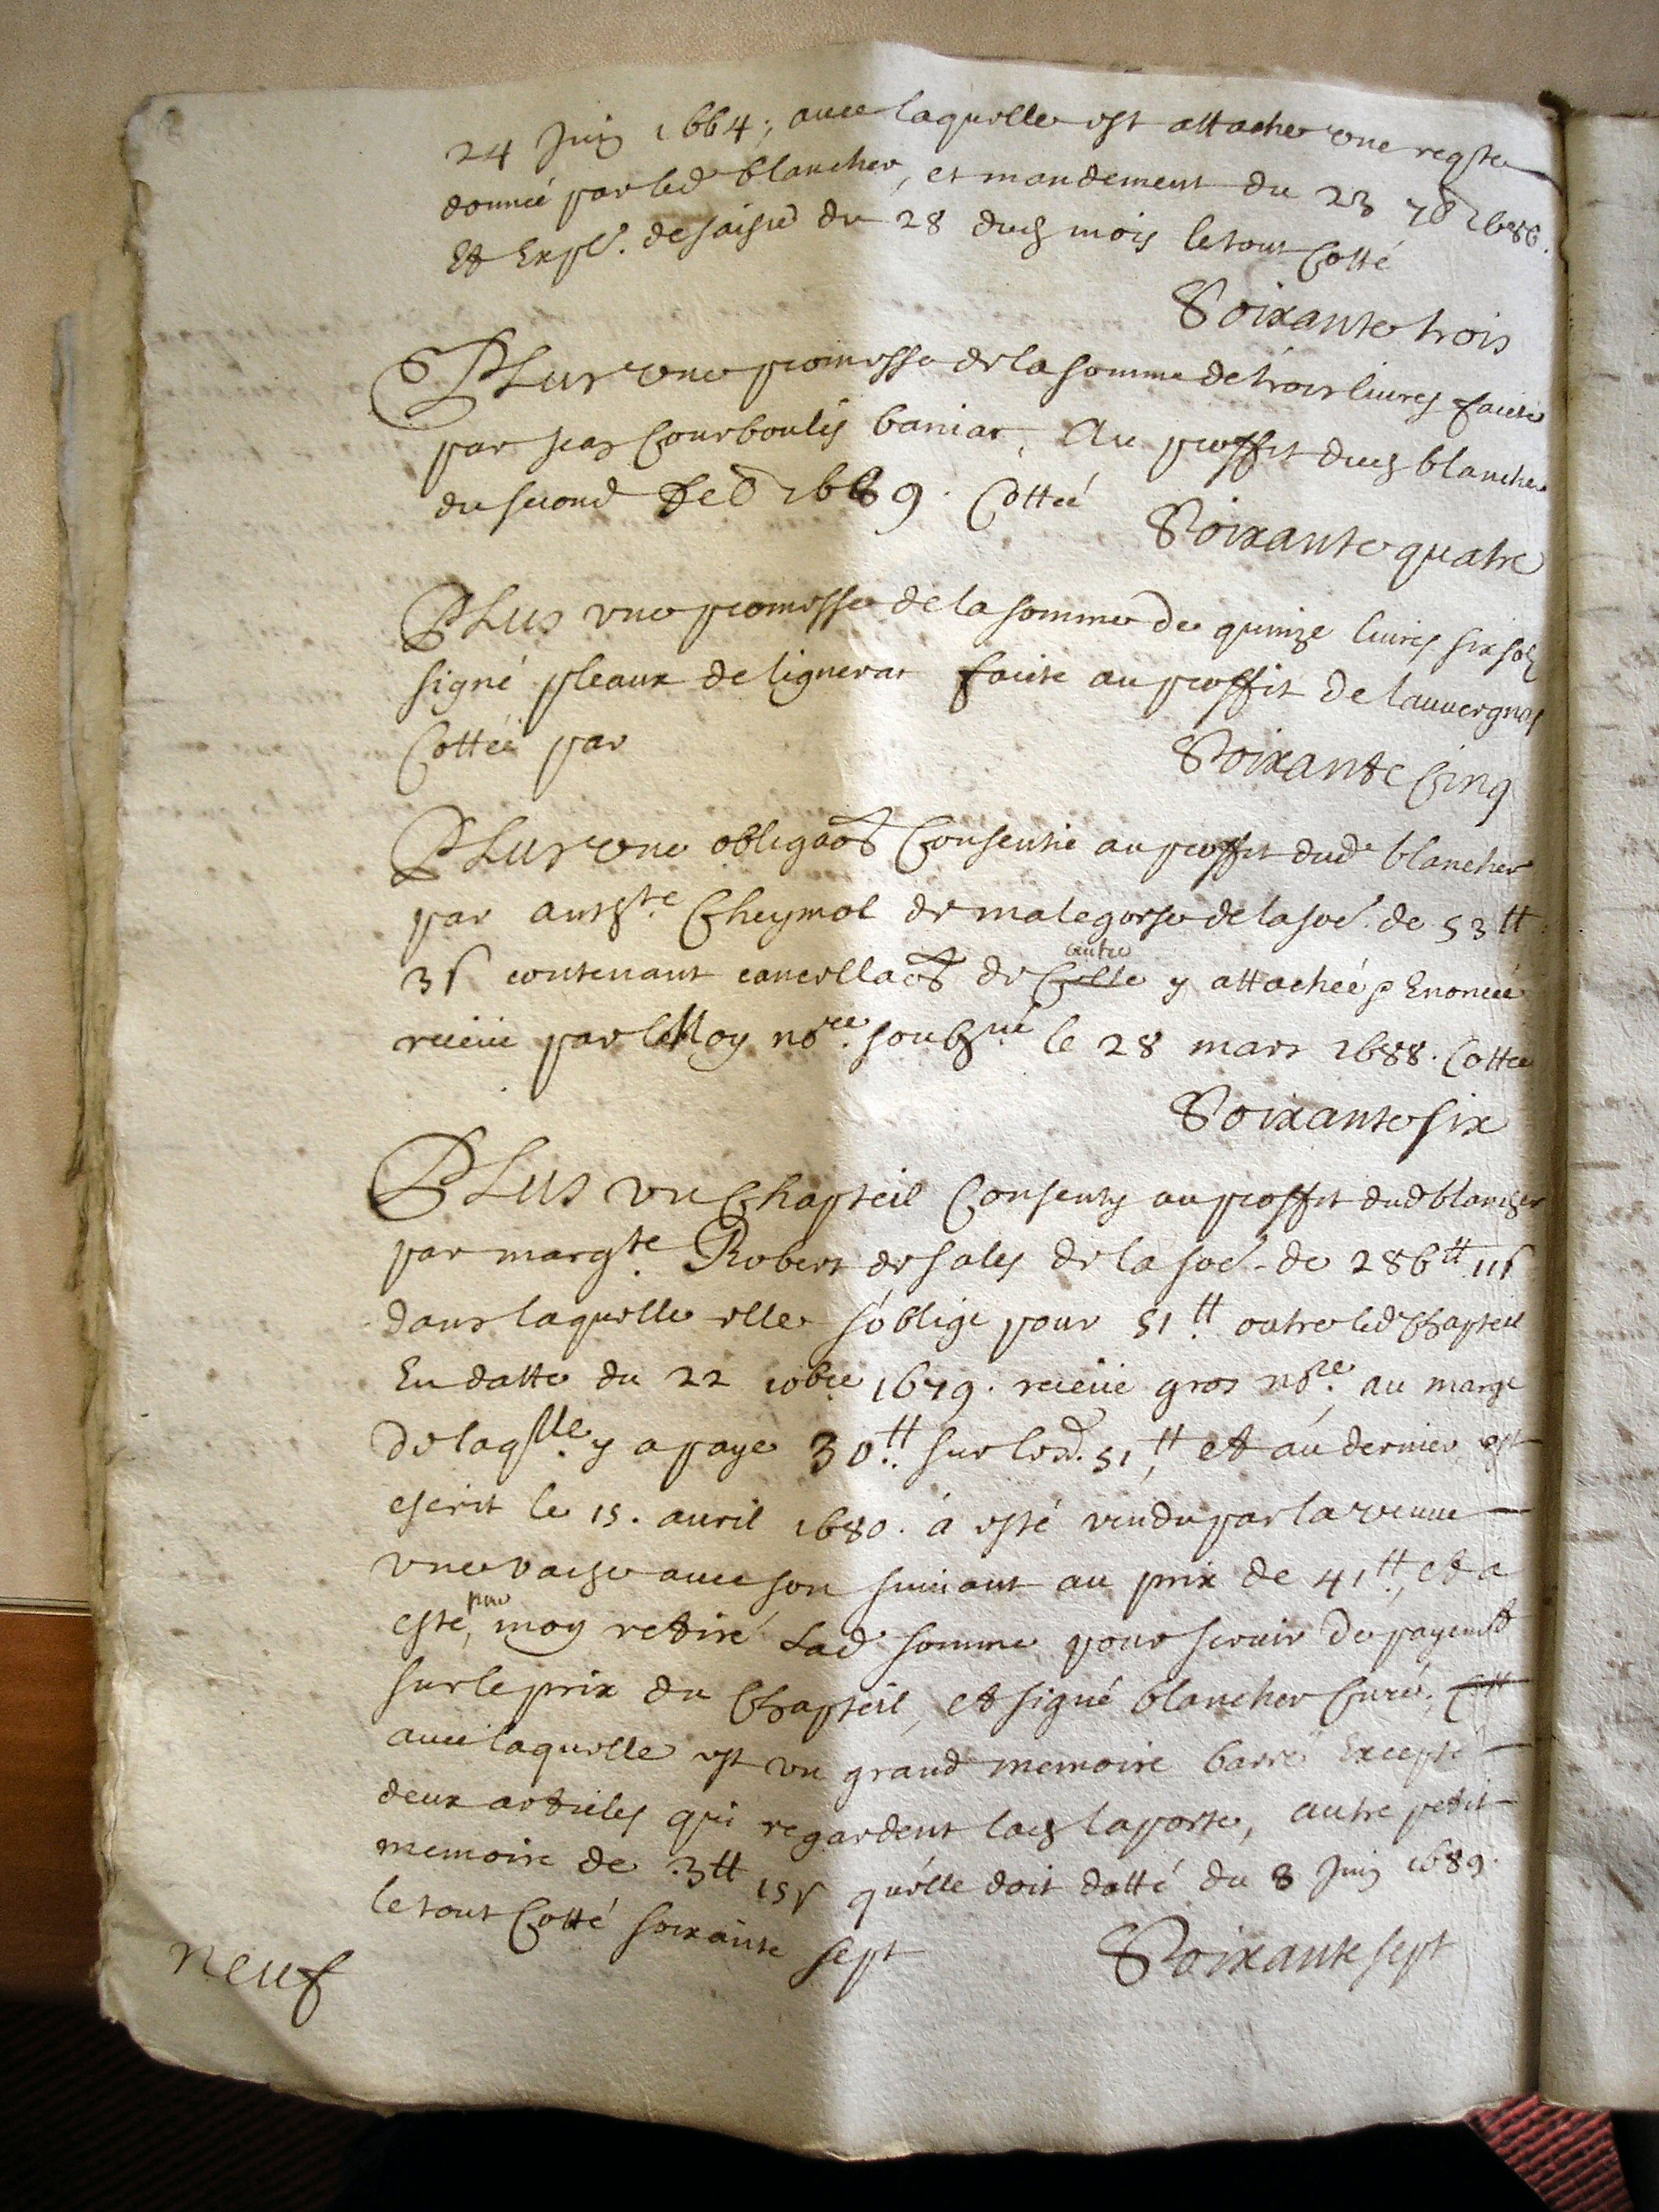 24 Juin 1664; avec laquelle est attaché une reqste
donnée par led blancher, et mandement du 23 7b 1686.
Et Expl. de saisie du 28 dud mois le tout Cotté
Soixante trois
PLus une promesse de la somme de trois livres faicte
par Jean Courboulis baniar, Au proffit dud blancher
du second 1669. Cottéé
Soixante quatre
PLus une promesse de la somme de quinze livres six solz
signé pleaux de lignerac faicte au proffit de lauvergnas
Cottéé par
Soixante Cinq
PLus une obligaõn Consentie au proffit dud blancher
par Cheymol de malegorse de la soe. de 53 tt
3 s contenant cancellaõn de autre y attachéé Enoncéé
receüe par le moy nore. soubsné le 28 mars 1688. Cottéé
Soixante six
PLus un Chapteil Consenty au proffit dud blancher
par margte. Robert de sales de la soe. de 286 tt 11 s
dans laquelle elle s'oblige pour 51 tt. outre led Chapteil
En datte du 22 10bre 1679. receüe gros nore. au marge
de laqlle. y a payé 30 tt. sur lesd. 51 tt, et au dernier est
escrit le 15. avril 1680. a esté vendu par la veuue
une vache avec son suivant au prix de 41 tt, et a
esté, par moy retiré Lad somme pour servir de payemt
sur le prix du Chapteil, et signé blancher Curé,
avec laquelle est un grand memoire barré Excepté
deux articles qui regardent lad laporte, autre petit
memoire de 3 tt 15 s qu'elle doit datté du 8 Juin 1689.
le tout Cotté soixante sept
Soixante sept
neuf